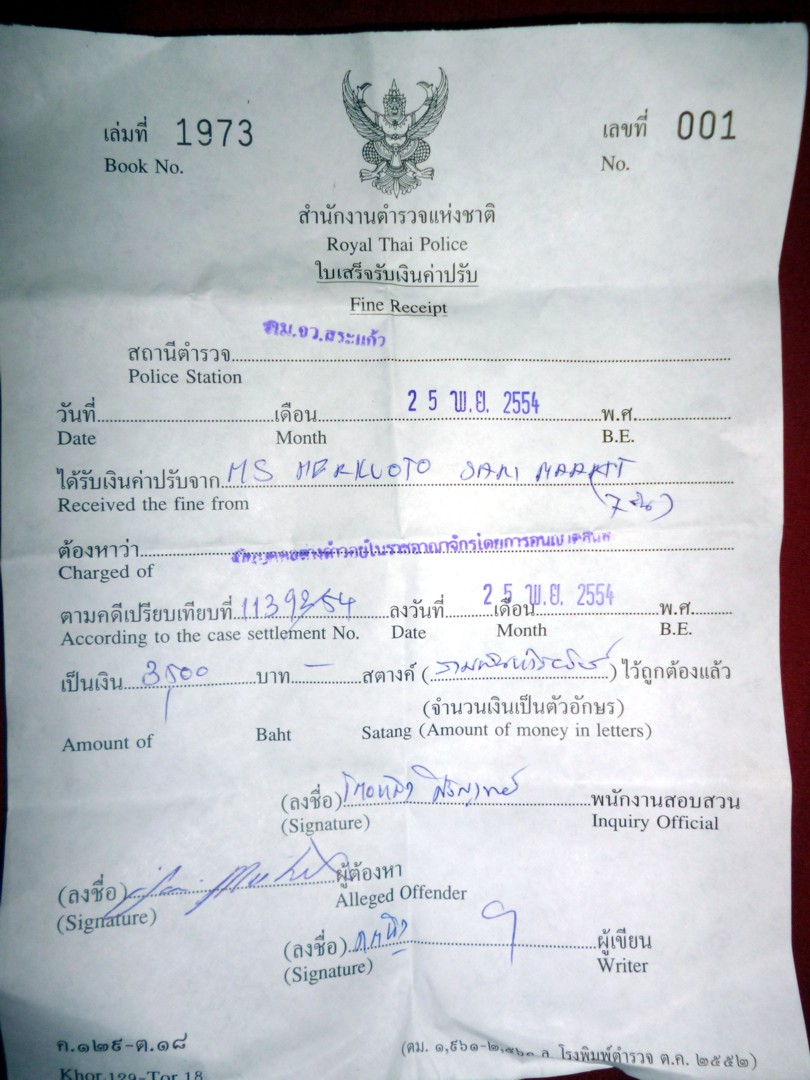 เล่มที่ 1973 เลขที่ 001
Book No. No.
สำนักงานตำรวจแห่งชาติ
Royal Thai Police
ใบเสร็จรับเงินค่าปรับ
Fine Receipt
ตม.จว.สระแก้ว
สถานีตำรวจ
Police Station
วันที่ เดือน 25 พ.ย. 2554 พ.ศ.
Date Month B.E.
ได้รับเงินค่าปรับจาก MS SARI
Received the fine from
(7 วัน)
ต้องหาว่า
Charged of
ตามคดีเปรียบเทียบที่ ลงวันที่ เดือน 25 พ.ย. 2554 พ.ศ.
According to the case settlement No. Date Month B.E.
เป็นเงิน 3,500 บาท - สตางค์ ( ) ไว้ถูกต้องแล้ว
(จำนวนเงินเป็นตัวอักษร)
Amount of Baht Satang (Amount of money in letters)
(ลงชื่อ) พนักงานสอบสวน
(Signature) Inquiry Official
(ลงชื่อ) ผู้ต้องหา
(Signature) Alleged Offender
(ลงชื่อ) ผู้เขียน
(Signature) Writer
ค.๑๒๙-ต.๑๘ โรงพิมพ์ตำรวจ ต.ค. ๒๕๕๒)
Khor.129-Tor.18